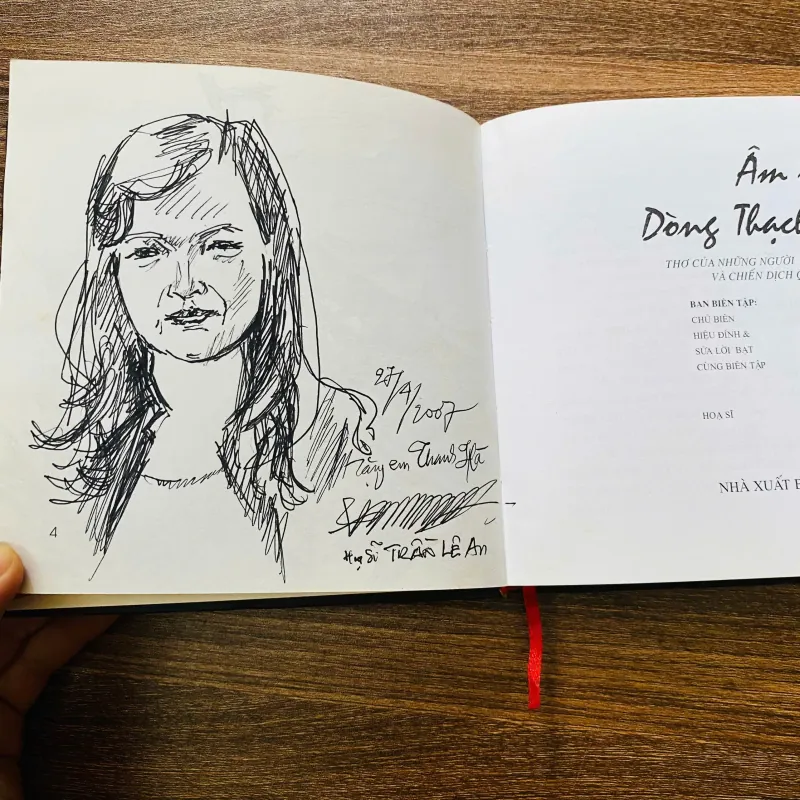 27/4/2007
tặng em Thanh Hà
Hoạ Sĩ TRẦN LÊ An
4
Âm
Dòng Thạch
THƠ CỦA NHỮNG NGƯỜI
VÀ CHIẾN DỊCH
BAN BIÊN TẬP:
CHỦ BIÊN
HIỆU ĐÍNH &
SỬA LỜI BẠT
CÙNG BIÊN TẬP
HOẠ SĨ
NHÀ XUẤT